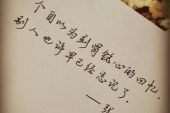 个自以为刻骨铭心的回忆，
别人也许早已经忘记了。